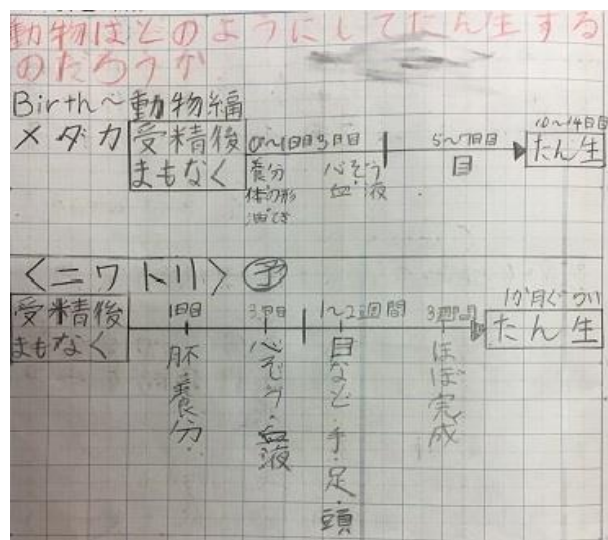 動物はどのようにしてたん生する
のだろうか
Birth～動物編
メダカ 受精後まもなく 0～1日目 3日目 5～7日目 10～14日目 たん生
養分 体の形 油てき 心ぞう 血液 目
〈ニワトリ〉 予
受精後まもなく 1日目 3日目 1～2週間 3週間 1か月ぐらい たん生
胚・養分・ 心ぞう・血液 目など・手・足・頭 ほぼ完成